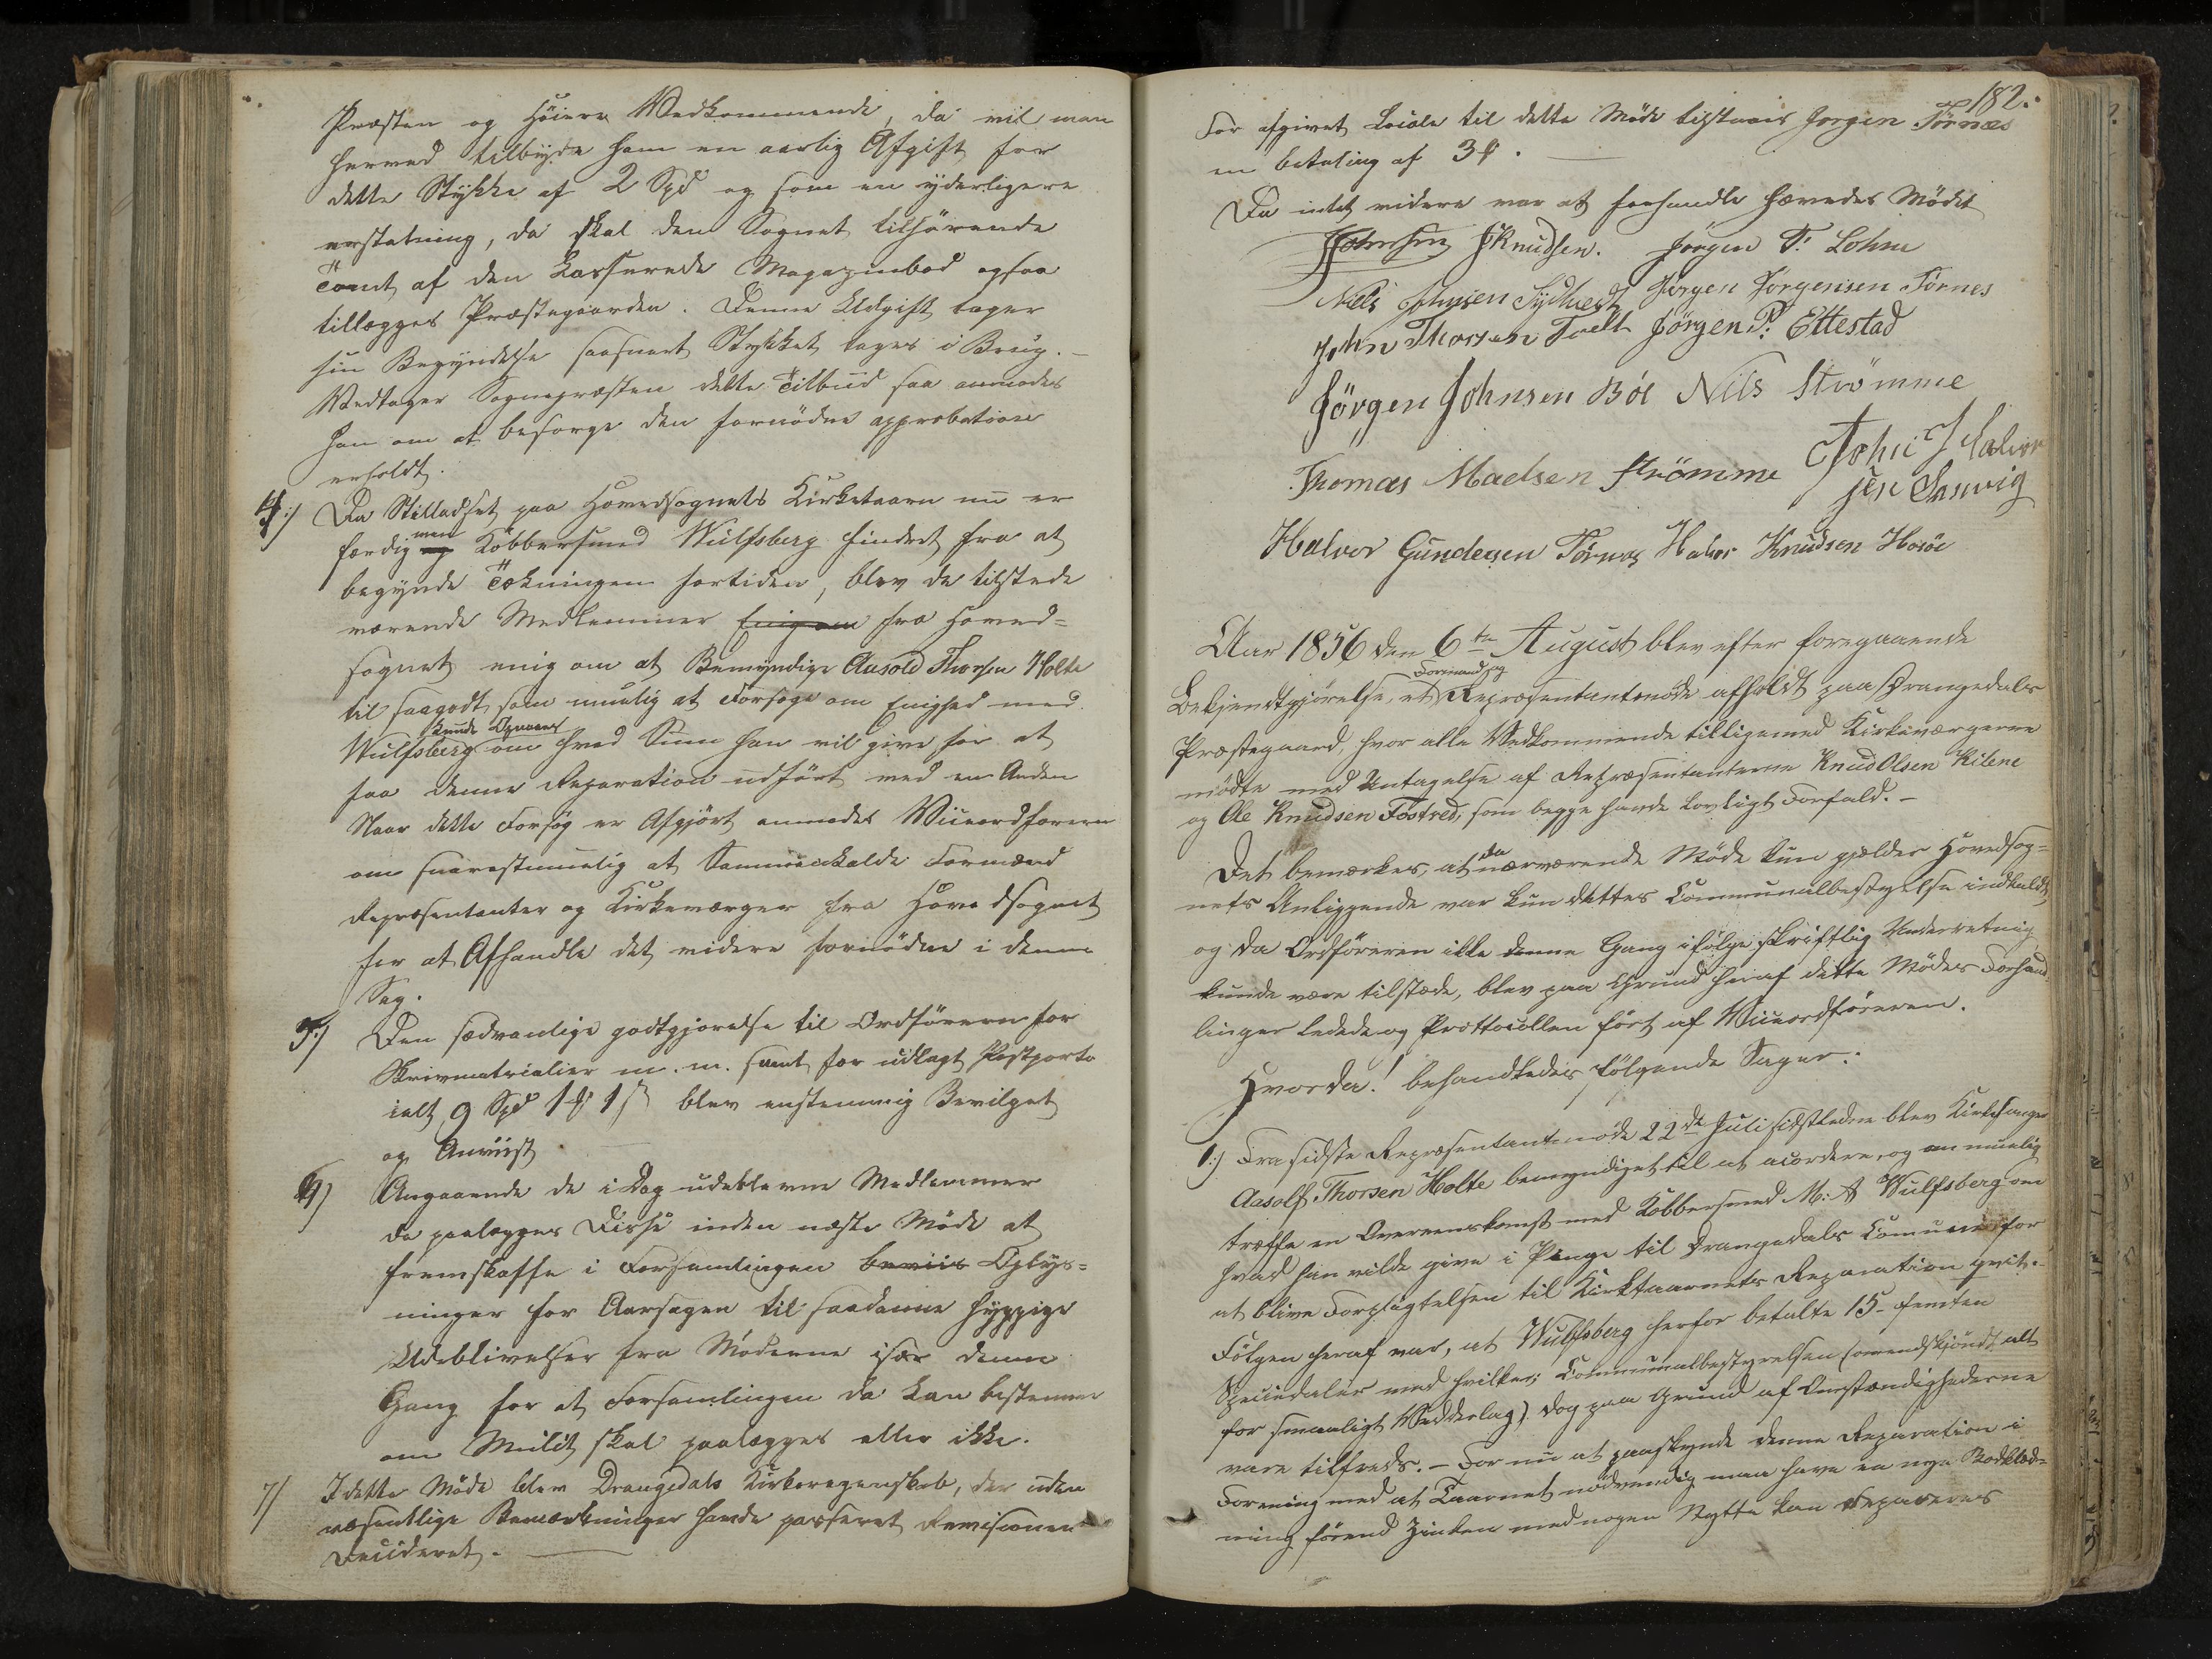 Præsten og Høiere Vedkommende, da vil man
herved tilbyde ham en aarlig Afgift for
dette Stykke af 2 Spd og som en yderligere
erstatning, da skal den Sognet tilhørende
Tomt af den Kasserede Magazinbod ogsaa
tillægges Præstegaarden. Denne Udgift tager
sin Begyndelse saasnart Stykket tages i Brug. –
Vedtager Sognepræsten dette Tilbud saa anmodes
han om at besørge den fornødne approbation
erholdt.
4:) Da Stilladset paa Hovedsognets Kirketaarn nu er
færdig men Kobbersmed Wulfsberg hindret fra at
begynde Tækningen fortiden, blev de tilstede
værende Medlemmer Enig om fra Hoved=
sognet enig om at Bemyndige Aasold Thorsen Holte
til saagodt som muelig at Forsøge om Enighed med
Wulfsberg om hvad Sum han vil give for at
faa denne Reparation udført med en Anden
Naar dette Forsøg er Afgjort anmodes Viceordføreren
om snarestmuelig at Sammenkalde Formænd
Repræsentanter og Kirkeværger fra Hovedsognet
for at Afhandle det videre fornødne i denne
Sag.
5:) Den sædvanlige godtgjørelse til Ordføreren for
Skrivmatrialier m. m. samt for udlagt Postporto
ialt 9 Spd 1 ort 1 s blev enstemmig Bevilget
og Anviist
6) Angaaende de i Dag udeblevne Medlemmer
da paalægges Disse inden næste Møde at
fremskaffe i Forsamlingen beviis Oplys=
ninger for Aarsagen til saadanne hyppige
Udeblivelser fra Møderne især denne
Gang for at Forsamlingen da kan bestemme
om Mulct skal paalægges eller ikke.
7/ I dette Møde blev Drangedals Kirkeregenskab, der uden
væsentlige Bemærkninger havde passeret Revisionen
Decideret. –
182.
For afgivet Locale til dette Møde tilstaaes Jørgen Tørnæs
en betaling af 3 ort. –
Da intet videre var at forhandle hævedes Mødet
JKnudsen. Jørgen T. Lohne
Nils Johnsen Sydhvedt Jørgen Jørgensen Tørnes
John Thorsen Tvelt Jørgen P. Ettestad
Jörgen Johnsen Böe Nils Strömme
Thomas Madsen Strömme John Halvor
sen Sanvig
Halvor Gundersen Törnes Halvor Knudsen Horöe
Aar 1856 den 6te August blev efter foregaaende
Formænd og
Bekjendtgjørelse, et Repræsentantmøde afholdt paa Drangedals
Præstegaard, hvor alle Vedkommende tilligemed Kirkeværgerne
mødte med Untagelse af Repræsentanterne Knud Olsen Kilene
og Ole Knudsen Fostved, som begge havde lovligt Forfald. –
Det bemærkes, at da nærværende Møde kun gjælder Hovedsog=
nets Anliggende var kun dettes Communalbestyrelse indkaldt,
og da Ordføreren ikke denne Gang ifølge skriftlig Underretning
kunde være tilstæde, blev paa Grund heraf dette Mødes Forhand
linger ledede og Prottocollen ført af Viceordføreren.
Hvorda! behandledes følgende Sager:
1:) Fra sidste Repræsentantmøde 22de Juli sidstleden blev Kirkesanger
Aasolf Thorsen Holte bemyndiget til at acordere, og om muelig
træffe en Overeenskomst med Kobbersmed M: A Wulfsberg om
hvad han vilde give i Penge til Drangedals Comune for
at blive Forpligtelsen til Kirketaarnets Reparation qvit. –
Følgen heraf var, at Wulfsberg herfor betalte 15 – femten
Speciedaler med hvilket Communalbestyrelsen (omendskjøndt alt
for smaaligt Vedderlag) dog paa Grund af Omstændighederne
vare tilfreds. – For nu at paaskynde denne Reparation i
Forening med at Taarnet nødvendig maa have en nye Bordklæd=
ning førend Zinken med nogen Nytte kan Repareres